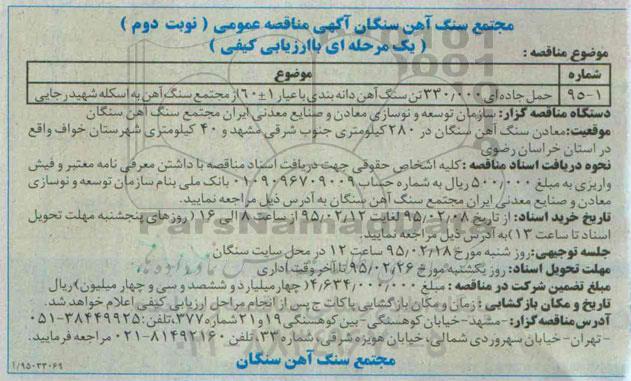 مجتمع سنگ آهن سنگان آگهی مناقصه عمومی ( نوبت دوم )
( یک مرحله ای با ارزیابی کیفی )
موضوع مناقصه :
شماره موضوع
۹۵-۱ حمل جاده ای ۳۳۰/۰۰۰ تن سنگ آهن دانه بندی با عیار ۱±۶۰٪ از مجتمع سنگ آهن به اسکله شهید رجایی
دستگاه مناقصه گزار: سازمان توسعه و نوسازی معادن و صنایع معدنی ایران مجتمع سنگ آهن سنگان
موقعیت: معادن سنگ آهن سنگان در ۲۸۰ کیلومتری جنوب شرقی مشهد و ۴۰ کیلومتری شهرستان خواف واقع
در استان خراسان رضوی
نحوه دریافت اسناد مناقصه : کلیه اشخاص حقوقی جهت دریافت اسناد مناقصه با داشتن معرفی نامه معتبر و فیش
واریزی به مبلغ ۵۰۰/۰۰۰ ریال به شماره حساب ۰۱۰۹۰۹۶۷۰۹۰۰۹ بانک ملی بنام سازمان توسعه و نوسازی
معادن و صنایع معدنی ایران مجتمع سنگ آهن سنگان به آدرس ذیل مراجعه نمایید.
تاریخ خرید اسناد: از تاریخ ۹۵/۰۲/۰۸ لغایت ۹۵/۰۲/۱۲ از ساعت ۸ الی ۱۶ ( روزهای پنجشنبه مهلت تحویل
اسناد تا ساعت ۱۳) به آدرس ذیل مراجعه نمایید.
جلسه توجیهی: روز شنبه مورخ ۹۵/۰۲/۱۸ ساعت ۱۲ در محل سایت سنگان
مهلت تحویل اسناد: روز یکشنبه مورخ ۹۵/۰۲/۲۶ تا آخر وقت اداری
مبلغ تضمین شرکت در مناقصه : مبلغ ۴/۶۳۴/۰۰۰/۰۰۰ (چهار میلیارد و ششصد و سی و چهار میلیون) ریال
تاریخ و مکان بازگشایی : زمان و مکان بازگشایی پاکات ج پس از انجام مراحل ارزیابی کیفی اعلام خواهد شد.
آدرس مناقصه گزار: -مشهد- خیابان کوهسنگی - بین کوهسنگی ۱۹ و ۲۱ شماره ۳۷۷، تلفن: ۳۸۴۴۹۹۲۵-۰۵۱
- تهران- خیابان سهروردی شمالی، خیابان هویزه شرقی، شماره ۳۳، تلفن ۸۱۴۹۲۱۶۰-۰۲۱ مراجعه فرمایید.
مجتمع سنگ آهن سنگان
۱/۹۵۰۳۳۰۶۹
ParsNamadData